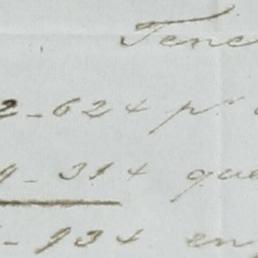 Tene
2-624 pr
9-314 que
-934 en